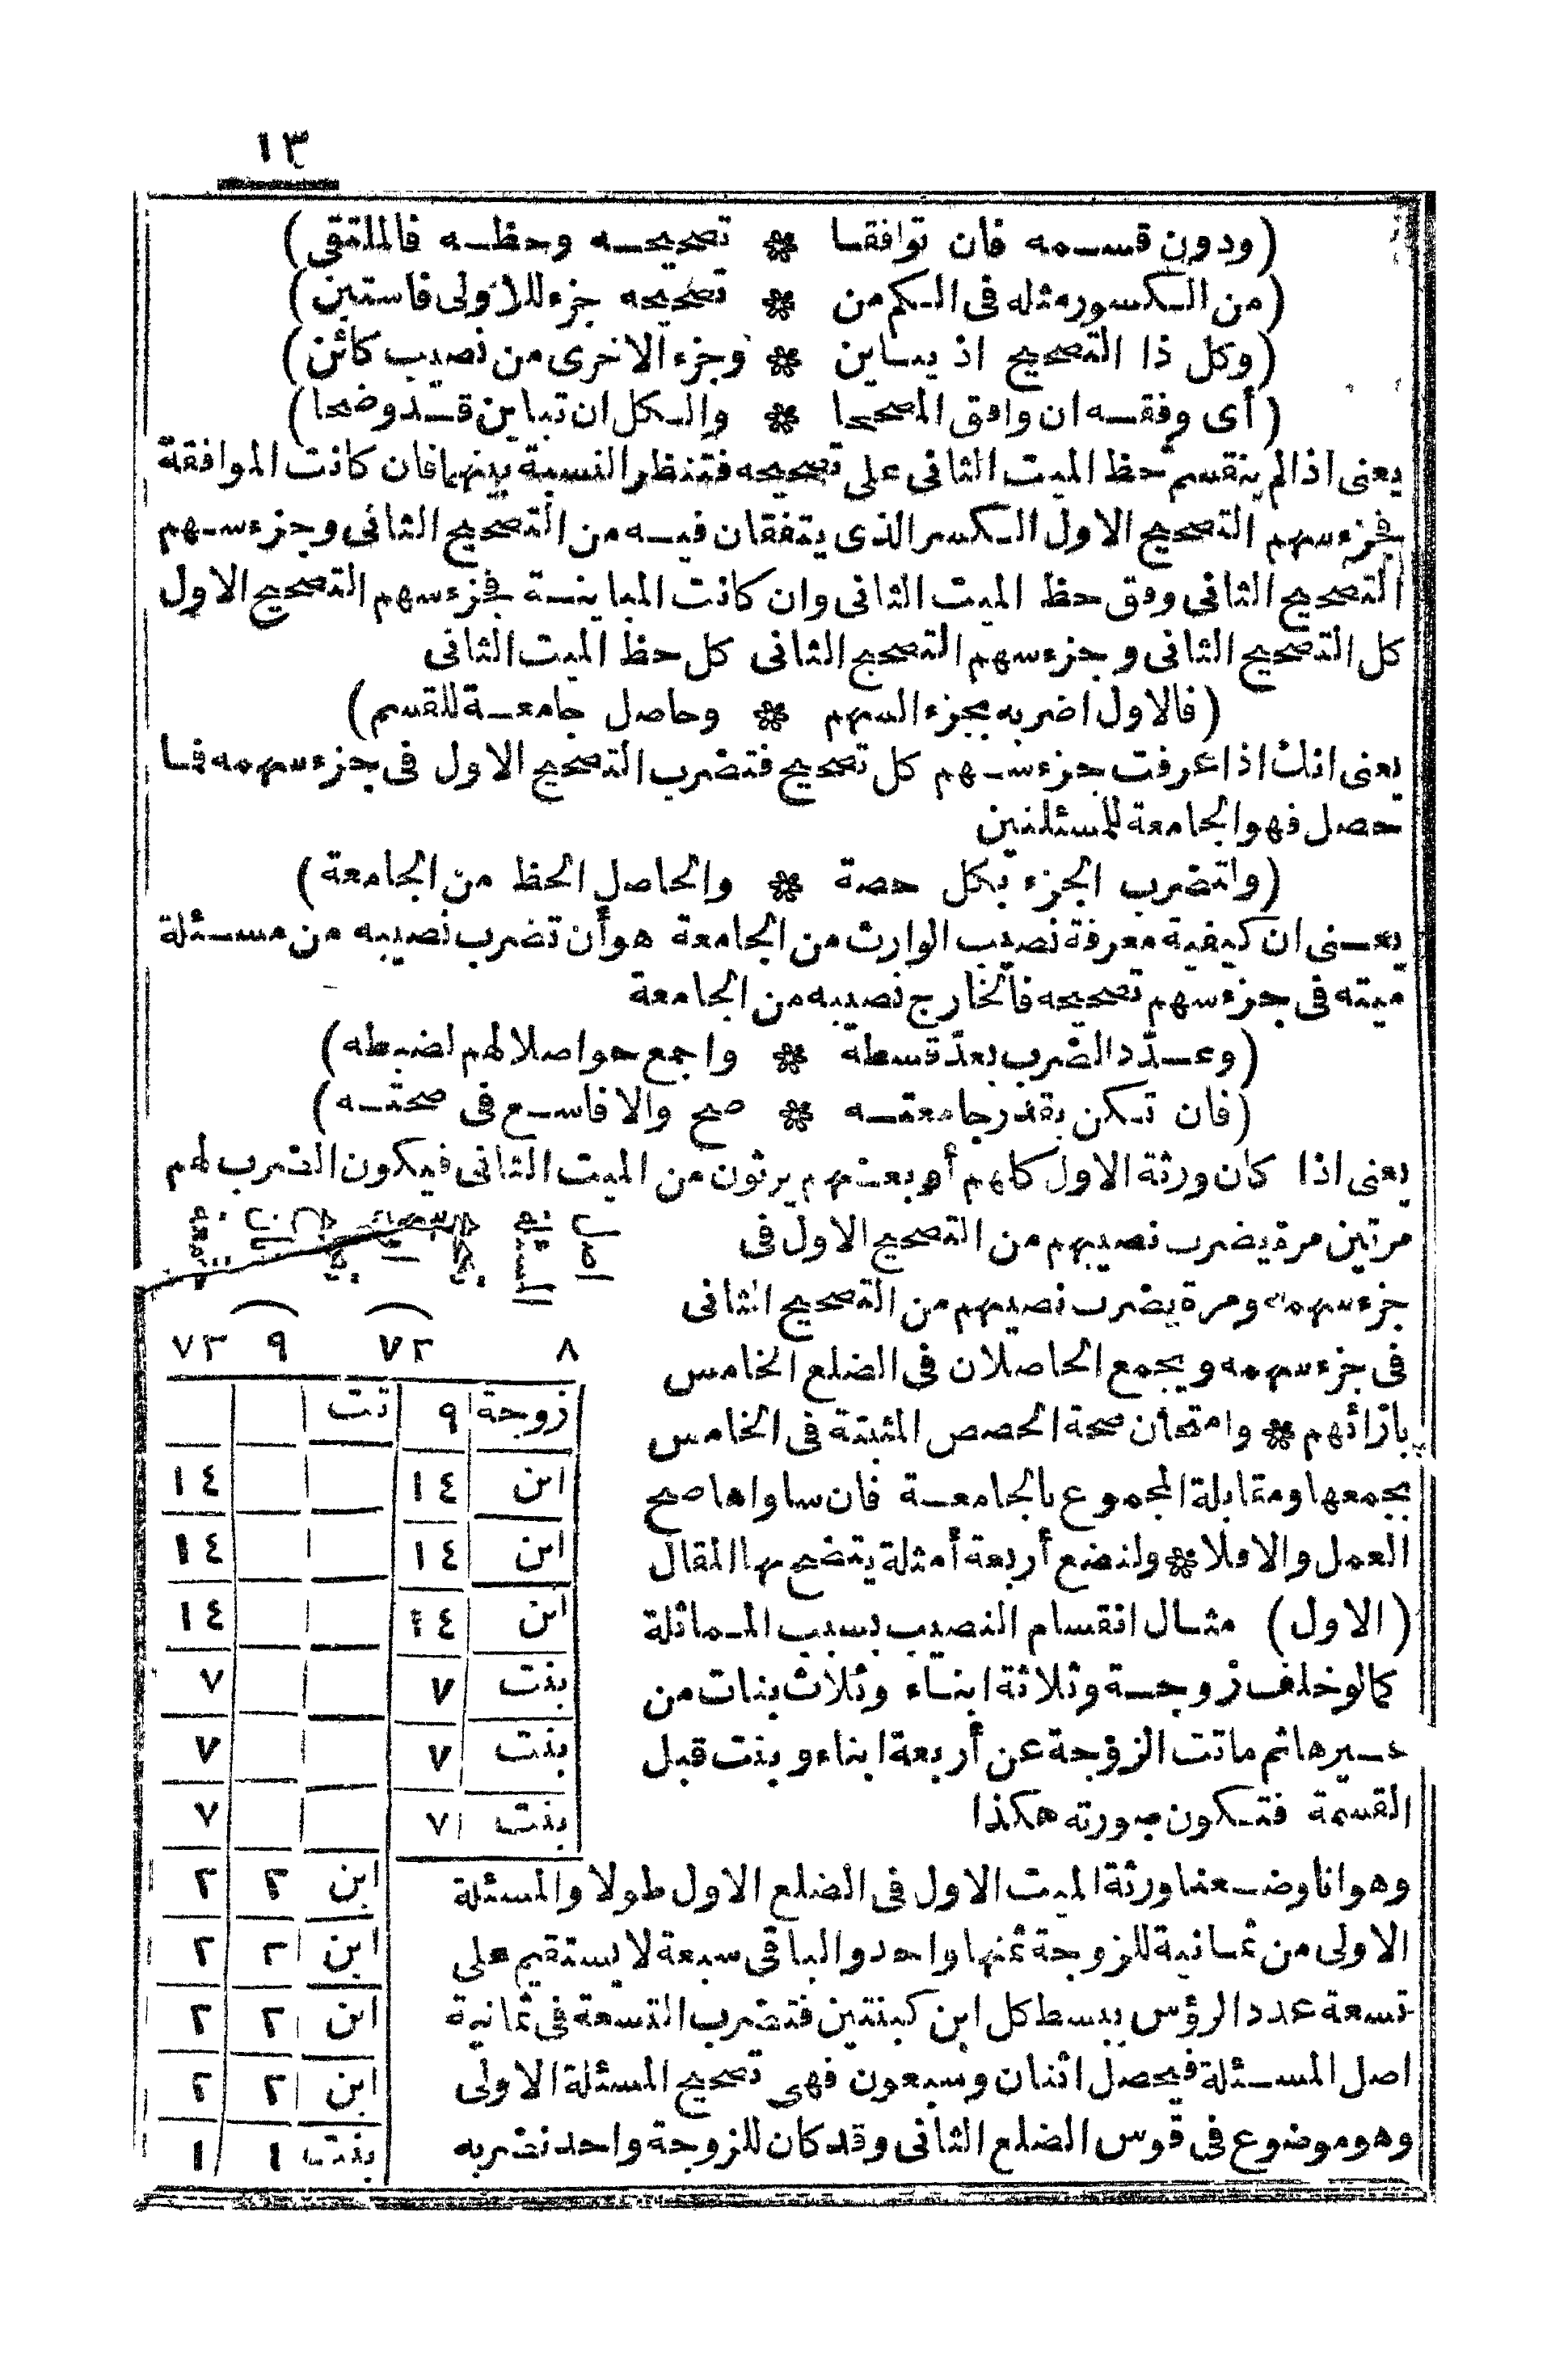 ١٣
(ودون قسمه فان توافقا * تصحيحه وحظه فالملتقى)
(من الكسور مثله فى الكم من * تصحيحه جزء للاولى فاستبن)
(وكل ذا التصحيح اذ يباين * وجزء الاخرى من نصيب كائن)
(أى وفقه ان وافق المصححا * والكل ان تباين قد وضحا)
يعنى اذا لم ينقسم حظ الميت الثانى على تصحيحه فتنظر النسبة بينهما فان كانت الموافقة
فجزء سهم التصحيح الاول الكسر الذى يتفقان فيه من التصحيح الثانى وجزء سهم
التصحيح الثانى وفق حظ الميت الثانى وان كانت المباينة فجزء سهم التصحيح الاول
كل التصحيح الثانى وجزء سهم التصحيح الثانى كل حظ الميت الثانى
(فالاول اضربه بجزء السهم * وحاصل جامعة للقسم)
يعنى انك اذا عرفت جزء سهم كل تصحيح فتضرب التصحيح الاول فى جزء سهمه فما
حصل فهو الجامعة للمسئلتين
(واتضرب الجزء بكل حصة * والحاصل الحظ من الجامعة)
يعنى ان كيفية معرفة نصيب الوارث من الجامعة هو أن تضرب نصيبه من مسئلة
ميته فى جزء سهم تصحيحه فالخارج نصيبه من الجامعة
(وعدّد الضرب بعدّ قسطه * واجمع حواصلا لهم لضبطه)
(فان تكن بقدر جامعته * صح والا فاسع فى صحته)
يعنى اذا كان ورثة الاول كلهم أو بعضهم يرثون من الميت الثانى فيكون الضرب لهم
مرتين مرة يضرب نصيبهم من التصحيح الاول فى
جزء سهمه ومرة يضرب نصيبهم من التصحيح الثانى
فى جزء سهمه ويجمع الحاصلان فى الضلع الخامس
بازائهم * وامتحان صحة الحصص المثبتة فى الخامس
بجمعها ومقابلة المجموع بالجامعة فان ساواها صح
العمل والا فلا * ولنضع أربعة أمثلة يتضح بها المقال
(الاول) مثال انقسام النصيب بسبب المماثلة
كما لو خلف زوجة وثلاثة ابناء وثلاث بنات من
غيرها ثم ماتت الزوجة عن أربعة ابناء وبنت قبل
القسمة فتكون صورته هكذا
٨ ٧٢ ٩ ٧٢
زوجة ٩ تت
ابن ١٤ ١٤
ابن ١٤ ١٤
ابن ١٤ ١٤
بنت ٧ ٧
بنت ٧ ٧
بنت ٧ ٧
ابن ٢ ٢
ابن ٢ ٢
ابن ٢ ٢
ابن ٢ ٢
بنت ١ ١
وهو انا وضعنا ورثة الميت الاول فى الضلع الاول طولا والمسئلة
الاولى من ثمانية للزوجة ثمنها واحد والباقى سبعة لا يستقيم على
تسعة عدد الرؤس ببسط كل ابن كبنتين فتضرب التسعة فى ثمانية
اصل المسئلة فيحصل اثنان وسبعون فهى تصحيح المسئلة الاولى
وهو موضوع فى قوس الضلع الثانى وقد كان للزوجة واحد نضربه